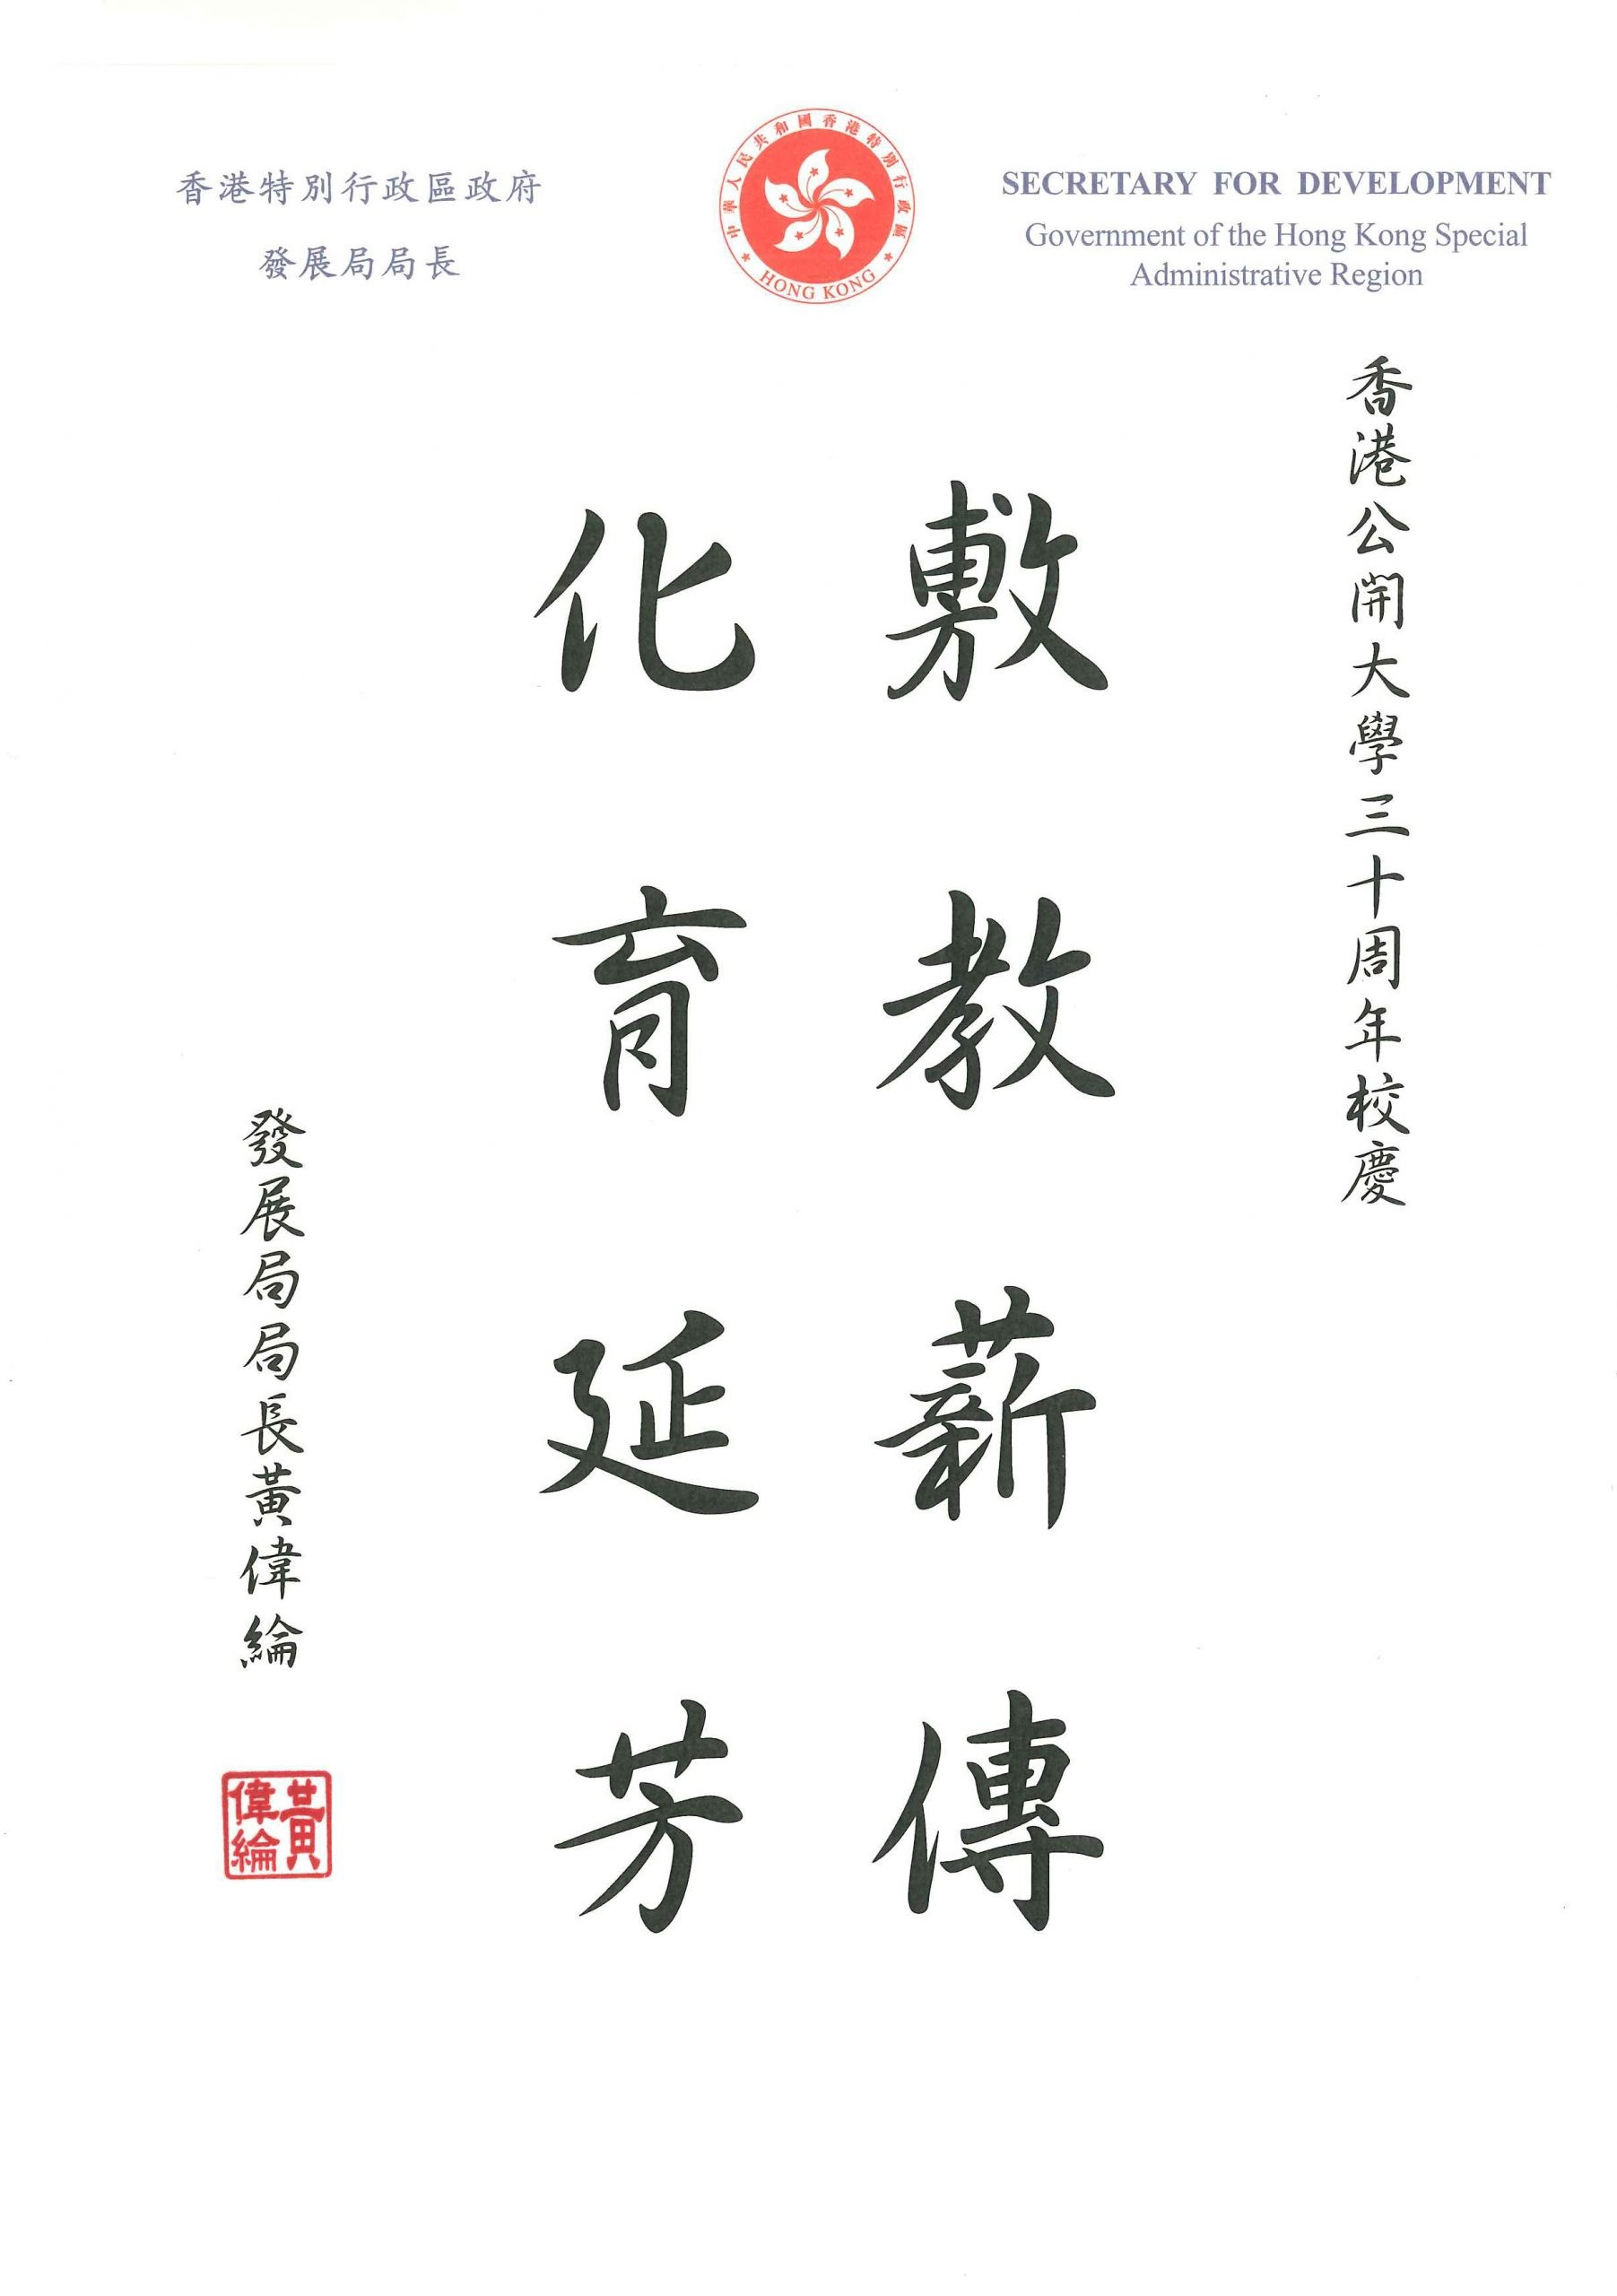 香港特別行政區政府
發展局局長
中華人民共和國香港特別行政區
HONG KONG
SECRETARY FOR DEVELOPMENT
Government of the Hong Kong Special
Administrative Region
香港公開大學三十周年校慶
敷教薪傳
化育延芳
發展局局長黃偉綸
黃
偉綸